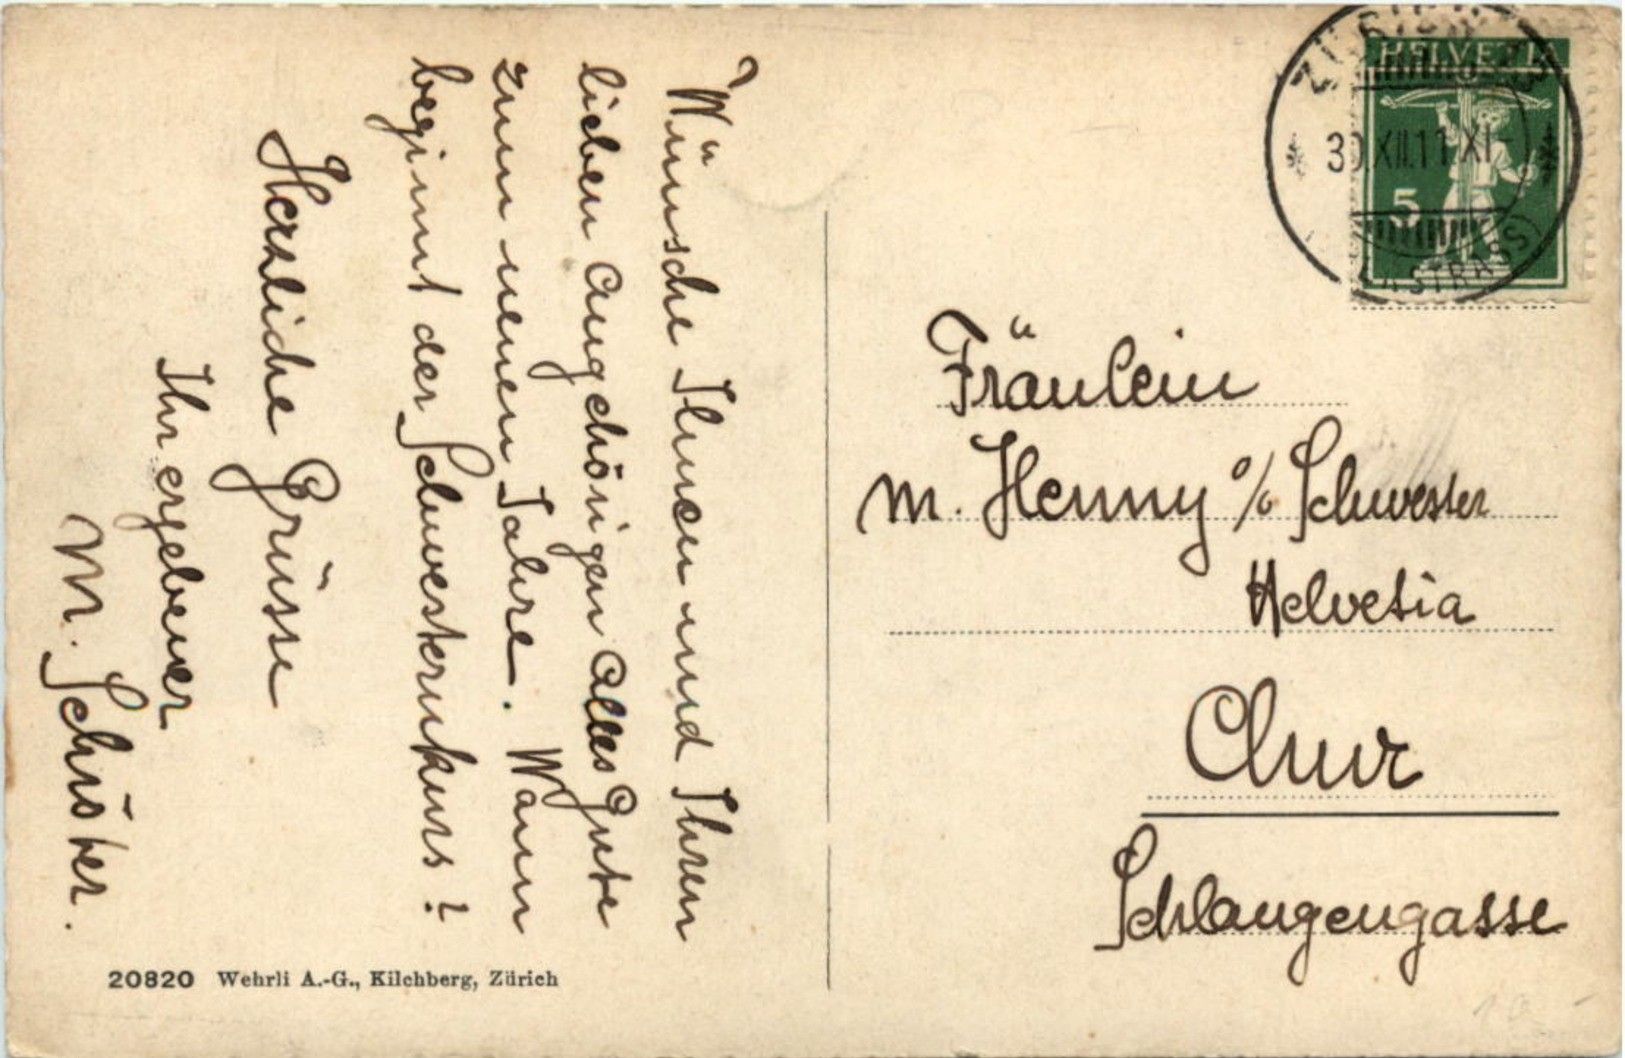 Wünsche Ihnen und Ihren
lieben Angehörigen alles Gute
zum neuen Jahre. Wann
beginnt der Schwesternkurs?
Herzliche Grüsse
Ihr ergebener
M. Schuster.
20820 Wehrli A.-G., Kilchberg, Zürich
HELVETIA
5
30.XII.11.XI
Fräulein
M. Henny c/o Schwester
Helvetia
Chur
Schlangengasse